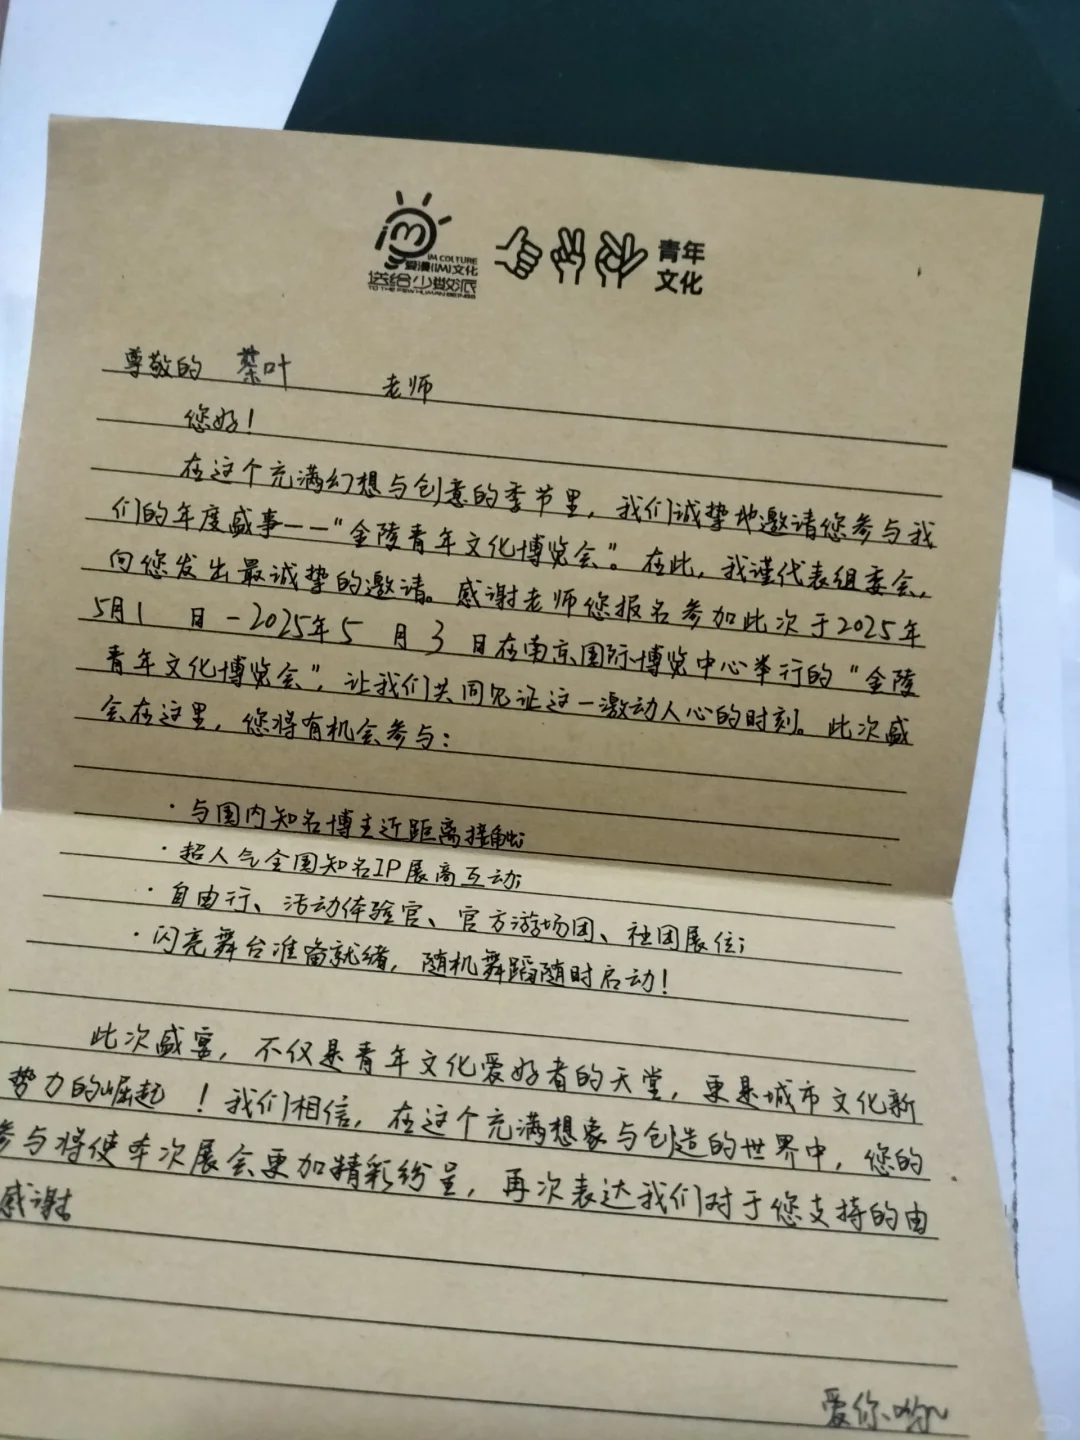 iM
IM COLTURE
爱漫(IM)文化
送给少数派
TO THE FEW HUMAN BEINGS
青年
文化
尊敬的 茶叶 老师
您好！
在这个充满幻想与创意的季节里，我们诚挚地邀请您参与我
们的年度盛事——“金陵青年文化博览会”。在此，我谨代表组委会，
向您发出最诚挚的邀请。感谢老师您报名参加此次于2025年
5月1 日-2025年5 月 3 日在南京国际博览中心举行的“金陵
青年文化博览会”，让我们共同见证这一激动人心的时刻。此次盛
会在这里，您将有机会参与：
·与国内知名博主近距离接触;
·超人气全国知名IP展商互动;
·自由行、活动体验官、官方游场团、社团展位;
·闪亮舞台准备就绪，随机舞蹈随时启动！
此次盛宴，不仅是青年文化爱好者的天堂，更是城市文化新
势力的崛起！我们相信，在这个充满想象与创造的世界中，您的
参与将使本次展会更加精彩纷呈，再次表达我们对于您支持的由
感谢。
爱你哟~